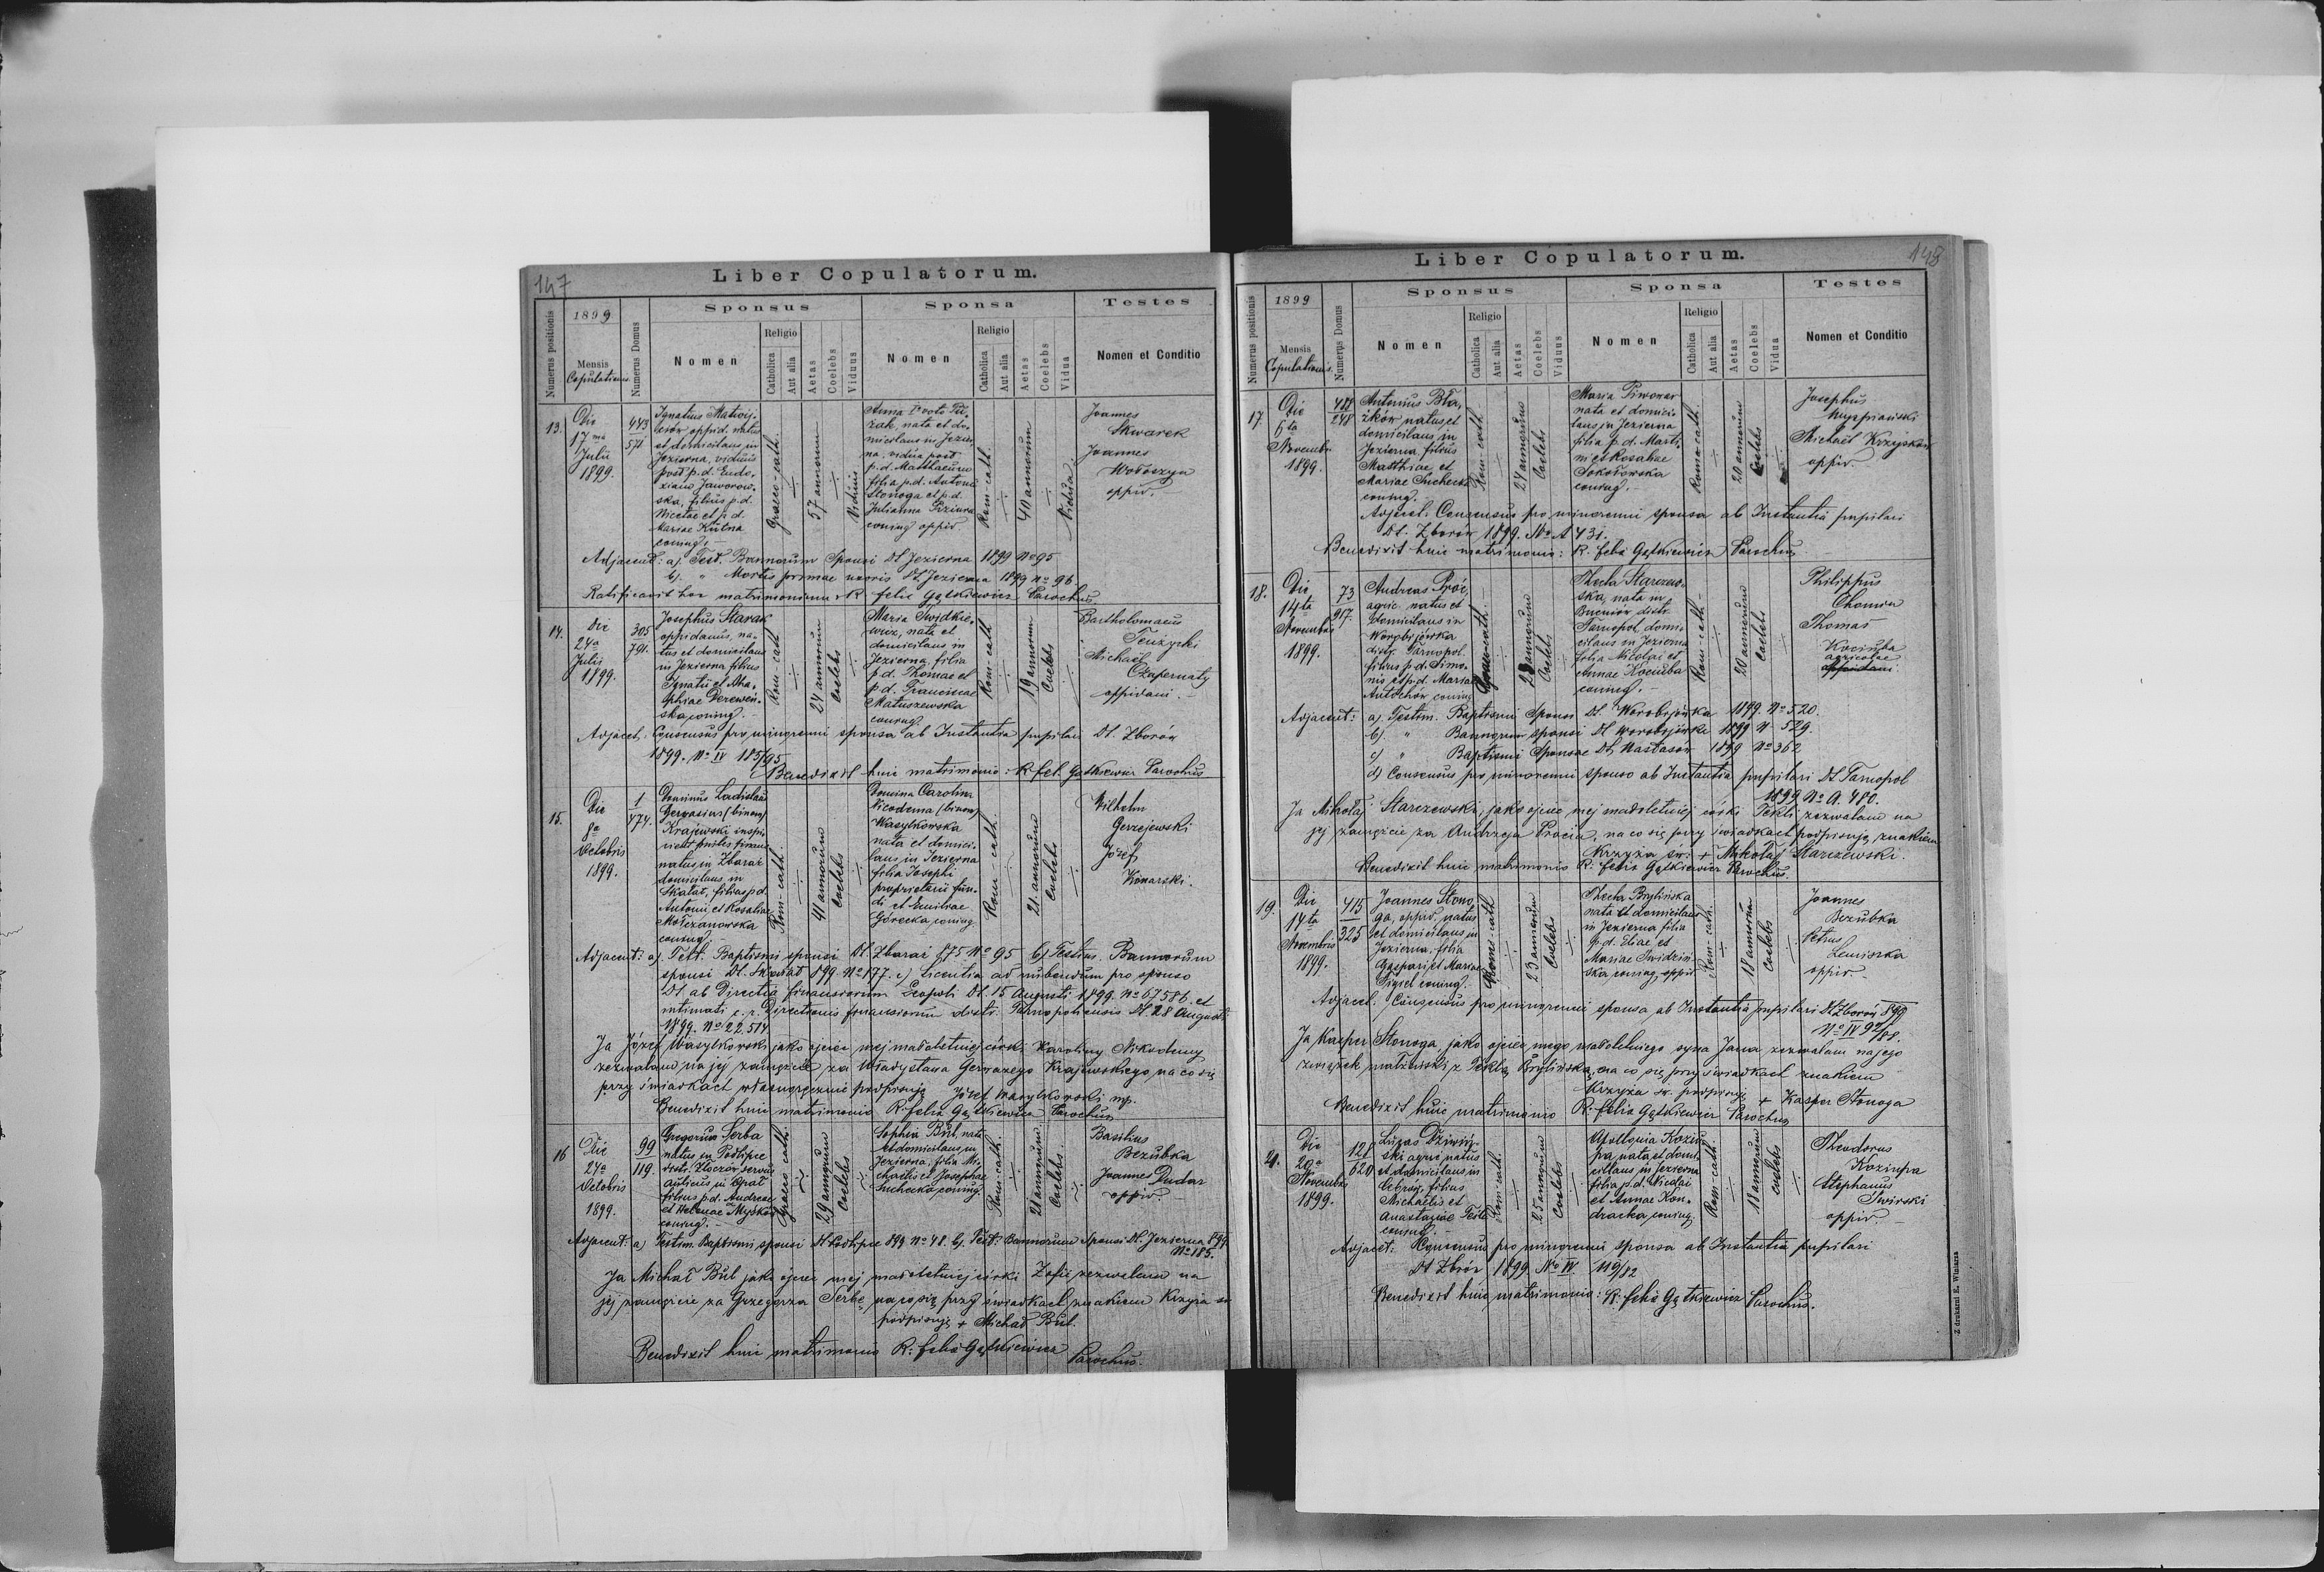 147
Liber Copulatorum.
Numerus positionis
1899
Mensis
Copulationis
Numerus Domus
Sponsus
Nomen
Religio
Catholica
Aut alia
Aetas
Coelebs
Viduus
Sponsa
Nomen
Religio
Catholica
Aut alia
Aetas
Coelebs
Vidua
Testes
Nomen et Conditio
13.
Die
17ma
Julii
1899.
443
571
Ignatius Matwij-
ców oppid. natus
et domicilans in
Jezierna, viduus
post p. d. Eudo-
xiam Jaworow-
ska, filius p.d.
Nicetae et p. d.
Mariae Kutna
coniug. –
Graeco-cath.
57 annorum
Viduus
Anna Io voto
nata et do-
micilans in Jezier-
na, vidua post
p. d. Matthaeum
filia p.d. Antonii
Stonoga et p.d.
Julianna
coniug oppid
Rom-cath.
40 annorum
Vidua
Joannes
Skwarek
Joannes
Wołoszyn
oppid. –
Adjacent: a). Test. Bannorum Sponsi Dt Jezierna 1899 No 95
b). " Mortis primae uxoris Dt. Jezierna 1899 No 96.
Ratificavit hoc matrimonium R felix Gątkiewicz Parochus
14.
Die
24a
Julii
1899.
305
791.
Josephus Starak
oppidanus, na-
tus et domicilans
in Jezierna filius
Ignatii et Aha-
phiae Derewen-
ska coniug. –
Rom-cath
24 annorum
Coelebs
Maria Swidkie-
wicz, nata et
domicilans in
Jezierna, filia
p d. Thomae et
p d. Franciscae
Matuszewska
coniug.
Rom-cath
19 annorum
Coelebs
Bartholomaeus
Tenżycki
Michaël
Czapernaty
oppidani. –
Adjacet. Consensus pro minorenni sponsa ab Instantia pupilari Dt. Zborów
1899. No IV 185/95
Benedixit huic matrimonio: R fel. Gątkiewicz Parochus
15.
Die
8a
Octobris
1899.
1
474.
Dominus Ladislaus
Gervasius (binom)
Krajewski inspi-
cient
natus in Zbaraż
domicilans in
Skałat, filius p.d.
Antonii, et Rosaliae
Mołczanowska
coniug.
Rom-cath.
41 annorum
Coelebs
Domina Carolina
Nicodema (binom)
Wasylkowska
nata et domici-
lans in Jezierna
filia Josephi
proprietarii fun-
di et Emiliae
Górecka, coniug
Rom cath.
21 annorum
Coelebs
Wilhelm
Gerzejewski
Józef
Konarski.
Adjacent: a). Test. Baptismi sponsi Dt. Zbaraż 875 No 95 b) Testim. Bannorum
sponsi Dt. Skałat 899 No 177. c) licentia ad nubendum pro sponso
Dt ab Directia finansiorum Leopoli Dt. 15 Augusti 1899. No 67586. et
intimati c. r. Directionis finansiorum distr. Tarnopoliensis Dt 28 Augusti
1899. No 22.514
Ja Józef Wasylkowski jako ojciec mej małoletniej córki Karoliny Nikodemy
zezwalam na jej zamęście za Władysława Gerwazego Krajewskiego na co się
przy świadkach własnoręcznie podpisuję Józef Wasylkowski mp.
Benedixit huic matrimonio R: felix Gątkiewicz Parochus
16
Die
24a
Octobris
1899.
99
119.
Gregorius Serba
natus in Podlipce
distr. Złoczów servus
aulicus in
filius p.d. Andreae
et Helenae Myśków
coniug. –
Graeco cath.
29 annorum
Coelebs
Sophia Bul, nata
et domicilans in
Jezierna, filia Mi-
chaelis et Josephae
Suchecka, coniug.
Rom-cath.
21 annorum
Coelebs.
Basilius
Bezubka
Joannes Dudar
oppid. –
Adjacent: a) Testim. Baptismi sponsi Dt Podlipce 899 No 48. b). Test: Bannorum sponsi Dt. Jezierna 899
No 185.
Ja Michał Bul jako ojciec mej małoletniej córki Zofii zezwalam na
jej zamęście za Grzegorza Serbę, na co się przy świadkach znakiem Krzyża św
podpisuję + Michał Bul.
Benedixit huic matrimonio R: felix Gątkiewicz
Parochus.
148
Liber Copulatorum.
Numerus positionis
1899
Mensis
Copulationis
Numerus Domus
Sponsus
Nomen
Religio
Catholica
Aut alia
Aetas
Coelebs
Viduus
Sponsa
Nomen
Religio
Catholica
Aut alia
Aetas
Coelebs
Vidua
Testes
Nomen et Conditio
17.
Die
6ta
Novembr.
1899.
248
Antonius Bła-
żków natus et
domicilans in
Jezierna filius
Matthiae et
Mariae Suchecka
coniug.
Rom-cath
24 annorum
Coelebs
Maria Piwowar
nata et domici-
lans in Jezierna
filia p. d. Marti-
ni et Rosaliae
Sokołowska
coniug. –
Roma-cath.
20 annorum
Coelebs
Josephus
Wyspiański
Michaël Krzyśków
oppid. –
Adjacet. Consensus pro minorenni sponsa ab Instantia pupilari
Dt. Zborów 1899. No A 431.
Benedixit huic matrimonio: R. felix Gątkiewicz Parochus
18.
Die
14ta
Novembris
1899.
73
917.
Andreas Proć,
agric. natus et
domicilans in
Worobijówka
distr. Tarnopol.
filius p.d. Simo-
nis et p.d. Mariae
Antochów coniug
23 annorum
Coelebs
Thecla Starzew-
ska, nata in
Bucniów distr.
Tarnopol, domi-
cilans in Jezierna
filia Nicolai et
Annae Kociuba
coniug. –
Rom-cath
20 annorum
Coelebs
Philippus
Chomin
Thomas
Kociuba
agricolae
Adjacent: a). Testim. Baptismi Sponsi Dt. Worobijówka 1899. No 520.
b). " Bannorum sponsi Dt Worobijówka 1899 No 529.
c) " Baptismi Sponsae Dt. Nastasów 1899 No 362
d) Consensus pro minorenni sponso ab Instantia pupilari Dt Tarnopol
1899 No A. 480.
Ja Mikołaj Starczewski, jako ojciec mej małoletniej córki Tekli zezwalam na
jej zamęście za Andrzeja Procia, na co się przy świadkach podpisuję, znakiem
Krzyża św: + Mikołaj Starczewski.
Benedixit huic matrimonio R: felix Gątkiewicz Parochus.
19.
Die
14ta
Novembris
1899.
415
325
Joannes Stono-
ga, oppid. natus
et domicilans in
Jezierna, filia
Gaspari et Mariae
Figiel coniug. –
23 annorum
Coelebs
Thecla Brylińska
nata et domicilans
in Jezierna filia
p.d. Eliae et
Mariae Swidziń-
ska, coniug. oppid
Rom-cath.
18 annorum
Coelebs
Joannes
Bezubka
Petrus
oppid.
Adjacet. Consensus pro minorenni sponsa ab Instantia pupilari Dt Zborów 899
No IV 92/88.
Ja Kasper Stonoga jako ojciec mego małoletniego syna Jana zezwalam na jego
związek małżeński z Teklą Brylińską, na co się przy świadkach znakiem
Krzyża św. podpisuję + Kasper Stonoga
Benedixit huic matrimonio R: felix Gątkiewicz Parochus
Die
20a
Novembris
1899.
128
620
Lucas Dziwiń-
ski agric natus
et domicilans in
Cebrów, filius
Michaëlis et
Anastasiae
coniug. –
Rom-cath.
25 annorum
Coelebs
Apollonia Koziu-
pa, nata et domi-
cillans in Jezierna
filia p.d. Nicolai
et Annae Kon-
dracka, coniug.
Rom-cath.
18 annorum
Coelebs
Theodorus
Koziupa
Stephanus
Swirski
oppid. –
Adjacet: Consensus pro minorenni sponsa ab Instantia pupilari
Dt Zborów 1899. No IV. 119/82
Benedixit huic matrimonio: R: felix Gątkiewicz Parochus.
Z drukarni E. Winiarza